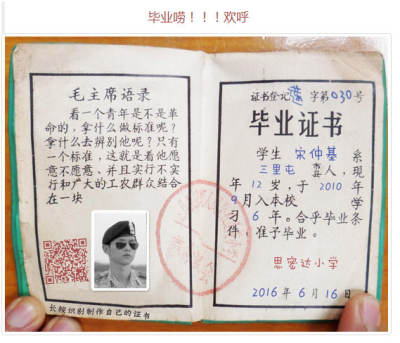 毕业唠！！！欢呼
毛主席语录
看一个青年是不是革
命的，拿什么做标准呢？
拿什么去辨别他呢？只有
一个标准，这就是看他愿
意不愿意、并且实行不实
行和广大的工农群众结合
在一块
长按识别制作自己的证书
证书登记 字第030号
毕业证书
学生 宋仲基 系
三里屯 人，现
年 12 岁，于 2010 年
9 月入本校 学
习 6 年。合乎毕业条
件，准予毕业。
思密达小学
2016 年 6 月 16 日